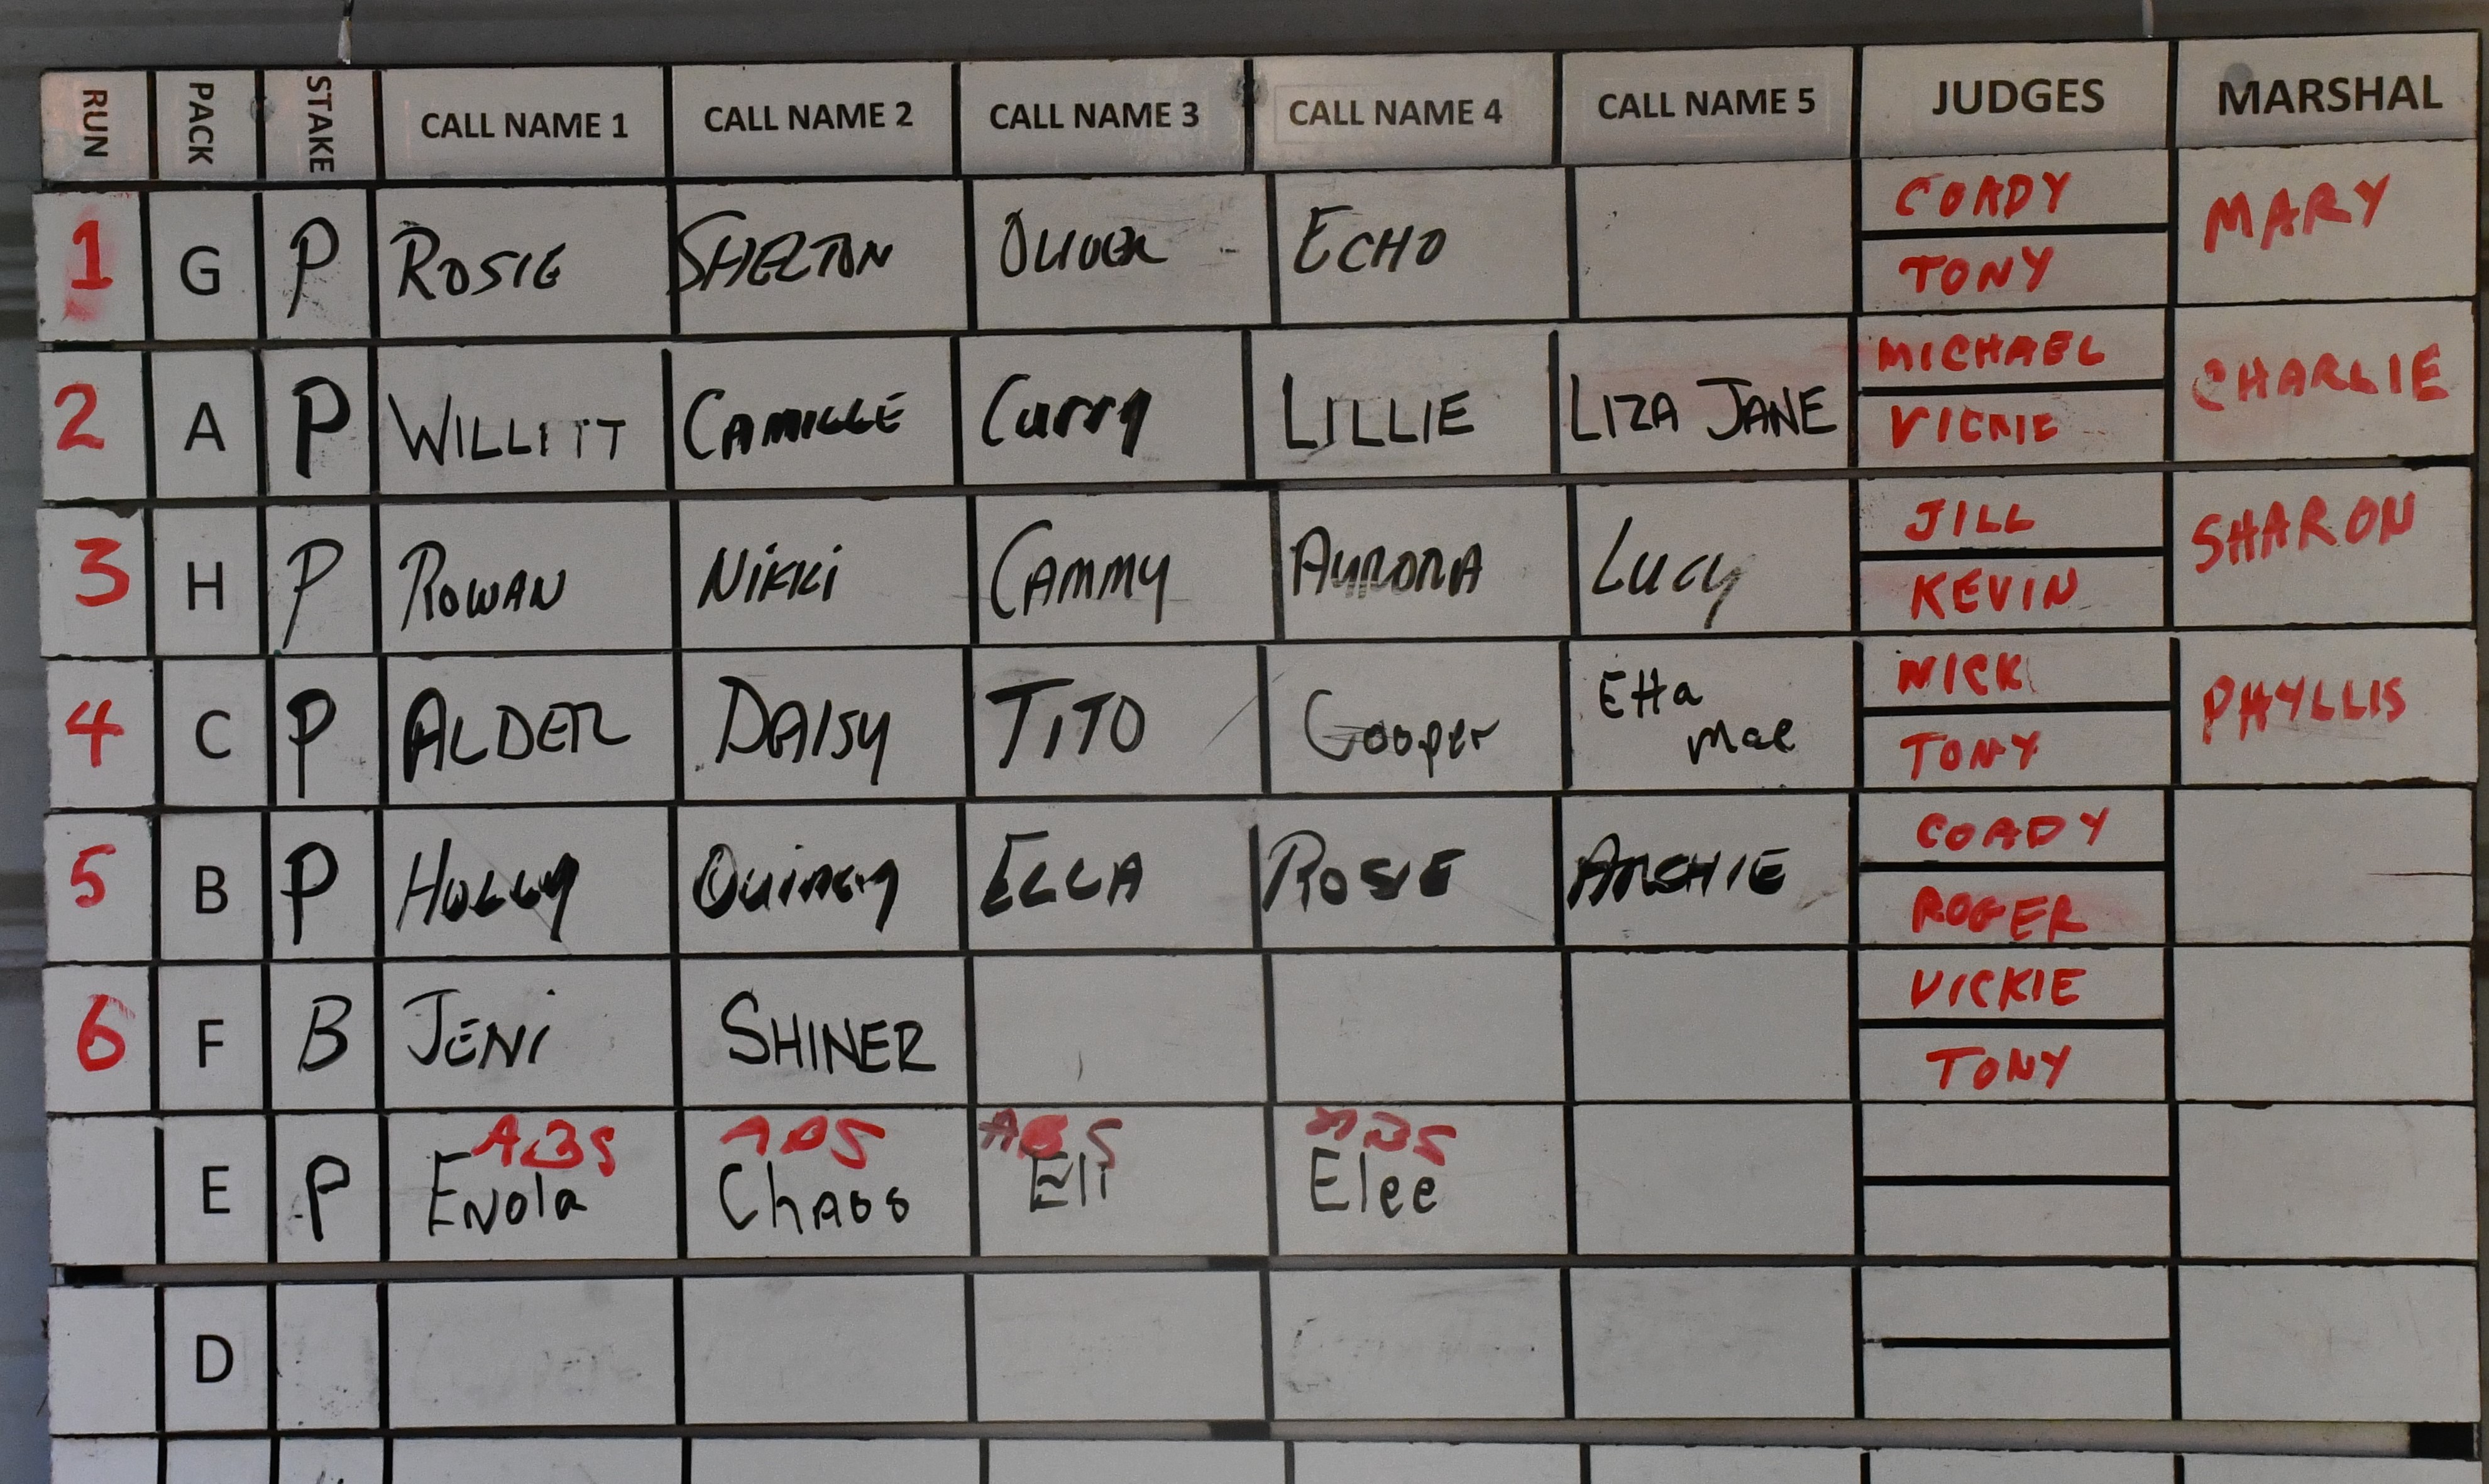 RUN PACK STAKE CALL NAME 1 CALL NAME 2 CALL NAME 3 CALL NAME 4 CALL NAME 5 JUDGES MARSHAL
1 G P ROSIE SHELTON OLIVER ECHO COADY MARY
TONY
2 A P CAMILLE Curry LILLIE LIZA JANE MICHAEL CHARLIE
VICKIE
3 H P ROWAN NiKKi CAMMY AURORA Lucy JILL SHARON
KEVIN
4 C P ALDER DAISY TITO Cooper Etta Mae NICK PHYLLIS
TONY
5 B P HOLLY Quincy ELLA ROSIE ARCHIE COADY
ROGER
6 F B JENi SHINER VICKIE
TONY
ABS ABS ABS ABS
E P ENola ChAos Eli Elee
D